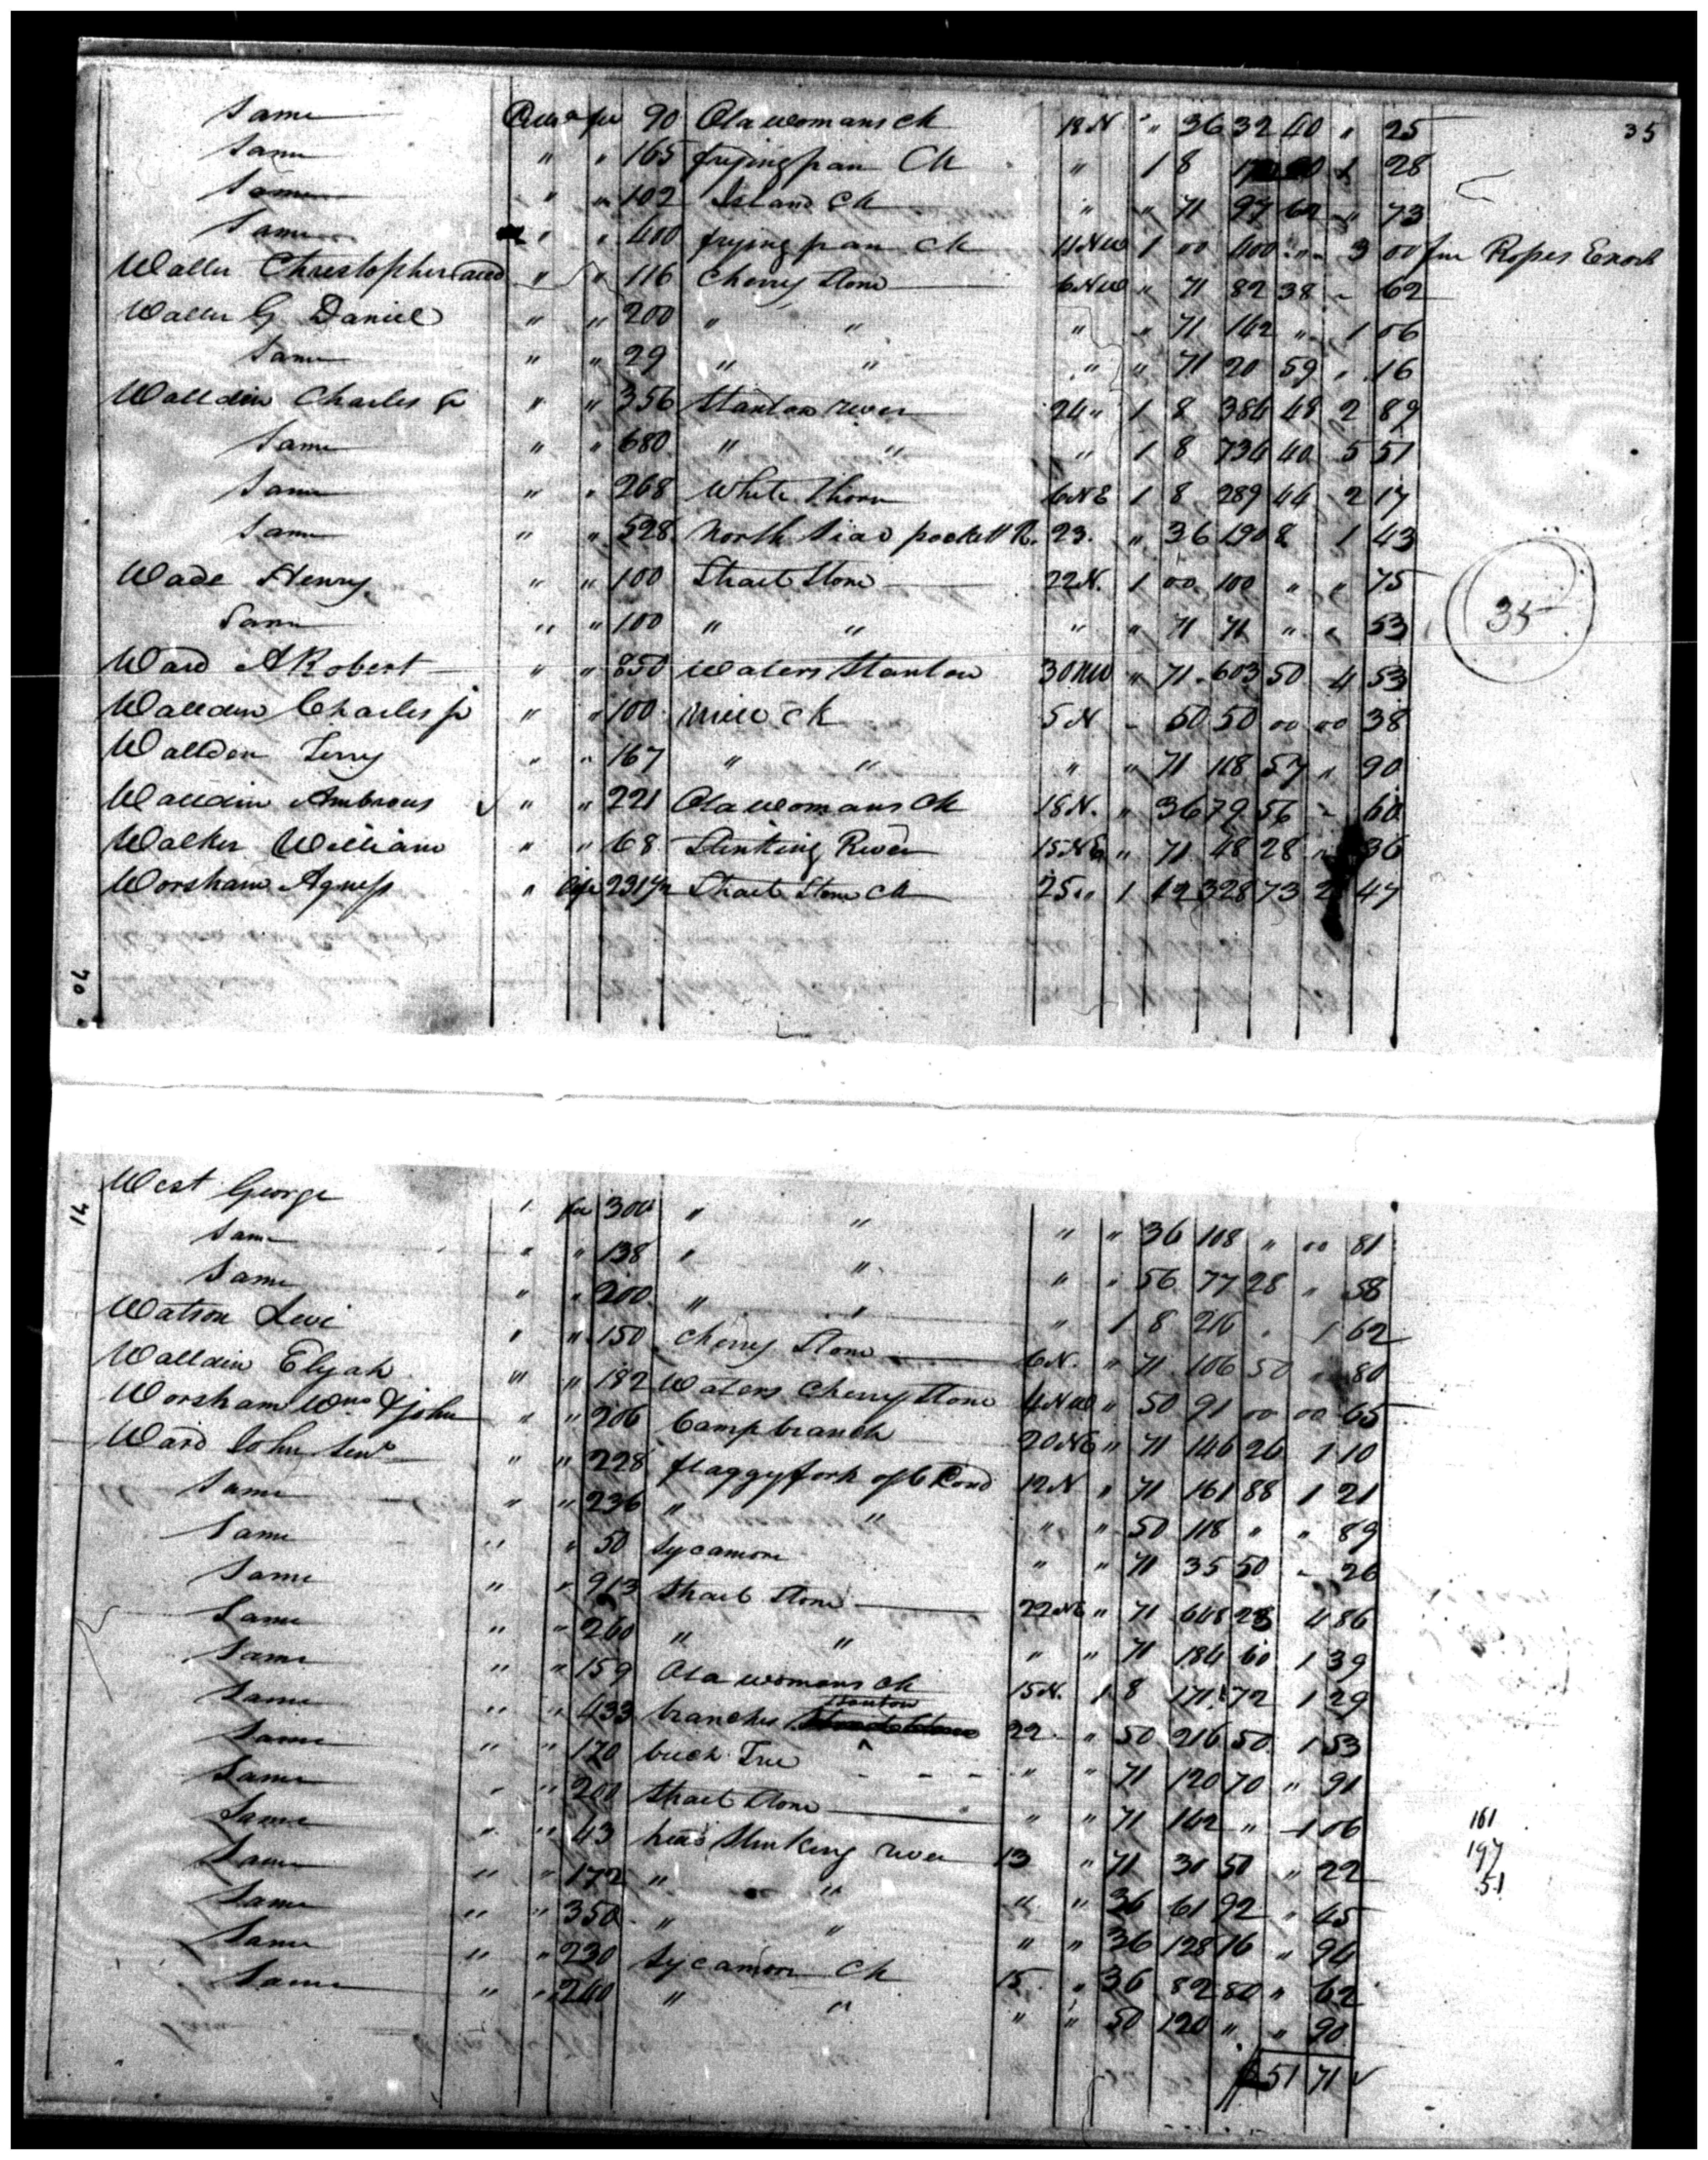 35
Same " fee 90 Oldwomans Ck 18 N " " 36 32 40 " 25
Same " " 165 fryingpan Ck " 1 8 1 28
Same " " 102 Island Ck " " 71 " 73
Same " " 400 frying pan Ck 11 NW 1 00 400 " 3 00 fm Ropes Enoch
Waller Christopher " " 116 Cherry Stone 6 NW " 71 82 38 " 62
Waller G Daniel " " 200 " " " " 71 142 " 1 06
Same " " 29 " " " " 71 20 59 " 16
Walldin Charles Sr " " 356 Stanton river 24 " 1 8 384 48 2 89
Same " " 680 " " " 1 8 734 40 5 51
Same " " 268 White Thorn 6 NE 1 8 289 44 2 17
Same " " 528 North Side pockett R. 23. " 36 190 8 1 43
Wade Henry " " 100 Strait Stone 22 N. 1 00 100 " " 75
Same " " 100 " " " " 71 71 " " 53
35
Ward A Robert " " 850 Waters Stanton 30 NW " 71 603 50 4 53
Walldin Charles jr " " 100 Mill Ck 5 N. " 50 50 00 00 38
Walldon Terry " " 167 " " " " 71 118 57 " 90
Walldin Ambrous " " 221 Oldwomans Ck 18 N. " 36 79 56 " 60
Walker William " " 68 Stinking River 15 NE " 71 48 28 " 36
Worsham Agness " life 231 1/2 Strait Stone Ck 25 " 1 42 328 73 2 47
70
71
West George " fee 300 " " " " 36 108 " 00 81
Same " " 138 " " " " 56 77 28 " 58
Same " " 200 " " " 1 8 216 " 1 62
Watson Levi " " 150 Cherry Stone 6 N. " 71 106 50 " 80
Walldin Elijah " " 182 Waters Cherrystone 4 NW " 50 91 00 00 65
Worsham Wm & John " " 206 Camp branch 20 NE " 71 146 26 1 10
Ward John Senr " " 228 flaggy fork of 12 N " 71 161 88 1 21
Same " " 236 " " " " 50 118 " " 89
Same " " 50 Sycamore " " 71 35 50 " 26
Same " " 913 Strait Stone 22 NE " 71 648 23 4 86
Same " " 260 " " " " 71 184 60 1 39
Same " " 159 Old womans Ck 15 N. 1 8 171 72 1 29
Same " " 433 branches Stanton 22 " 50 216 50 1 53
Same " " 170 beech Tree " " 71 120 70 " 91
Same " " 200 Strait Stone " " 71 142 " 1 06
Same " " 43 head Stinking river 13 " 71 30 50 " 22
Same " " 172 " " " " 36 61 92 " 45
Same " " 350 " " " " 36 128 76 " 94
Same " " 230 Sycamore Ck 15 " 36 82 80 " 62
Same " " 240 " " " " 50 120 " " 90
51 71
161
197
51